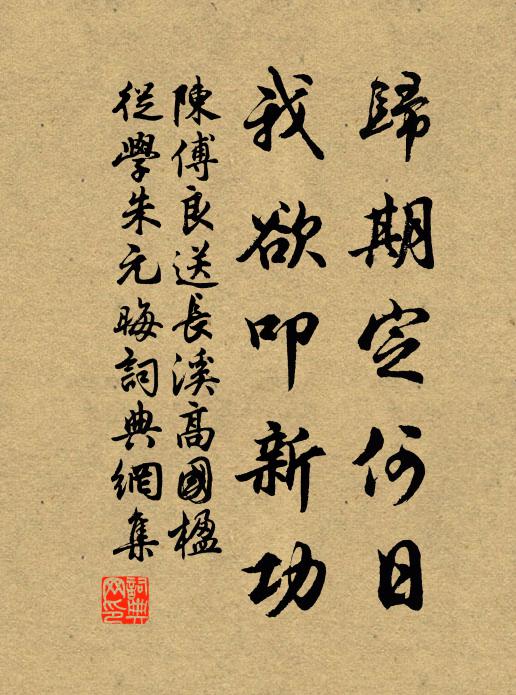 歸期定何日
我欲叩新功
陳傅良送長溪高國楹
從學朱元晦詞典網集
詞典
网印